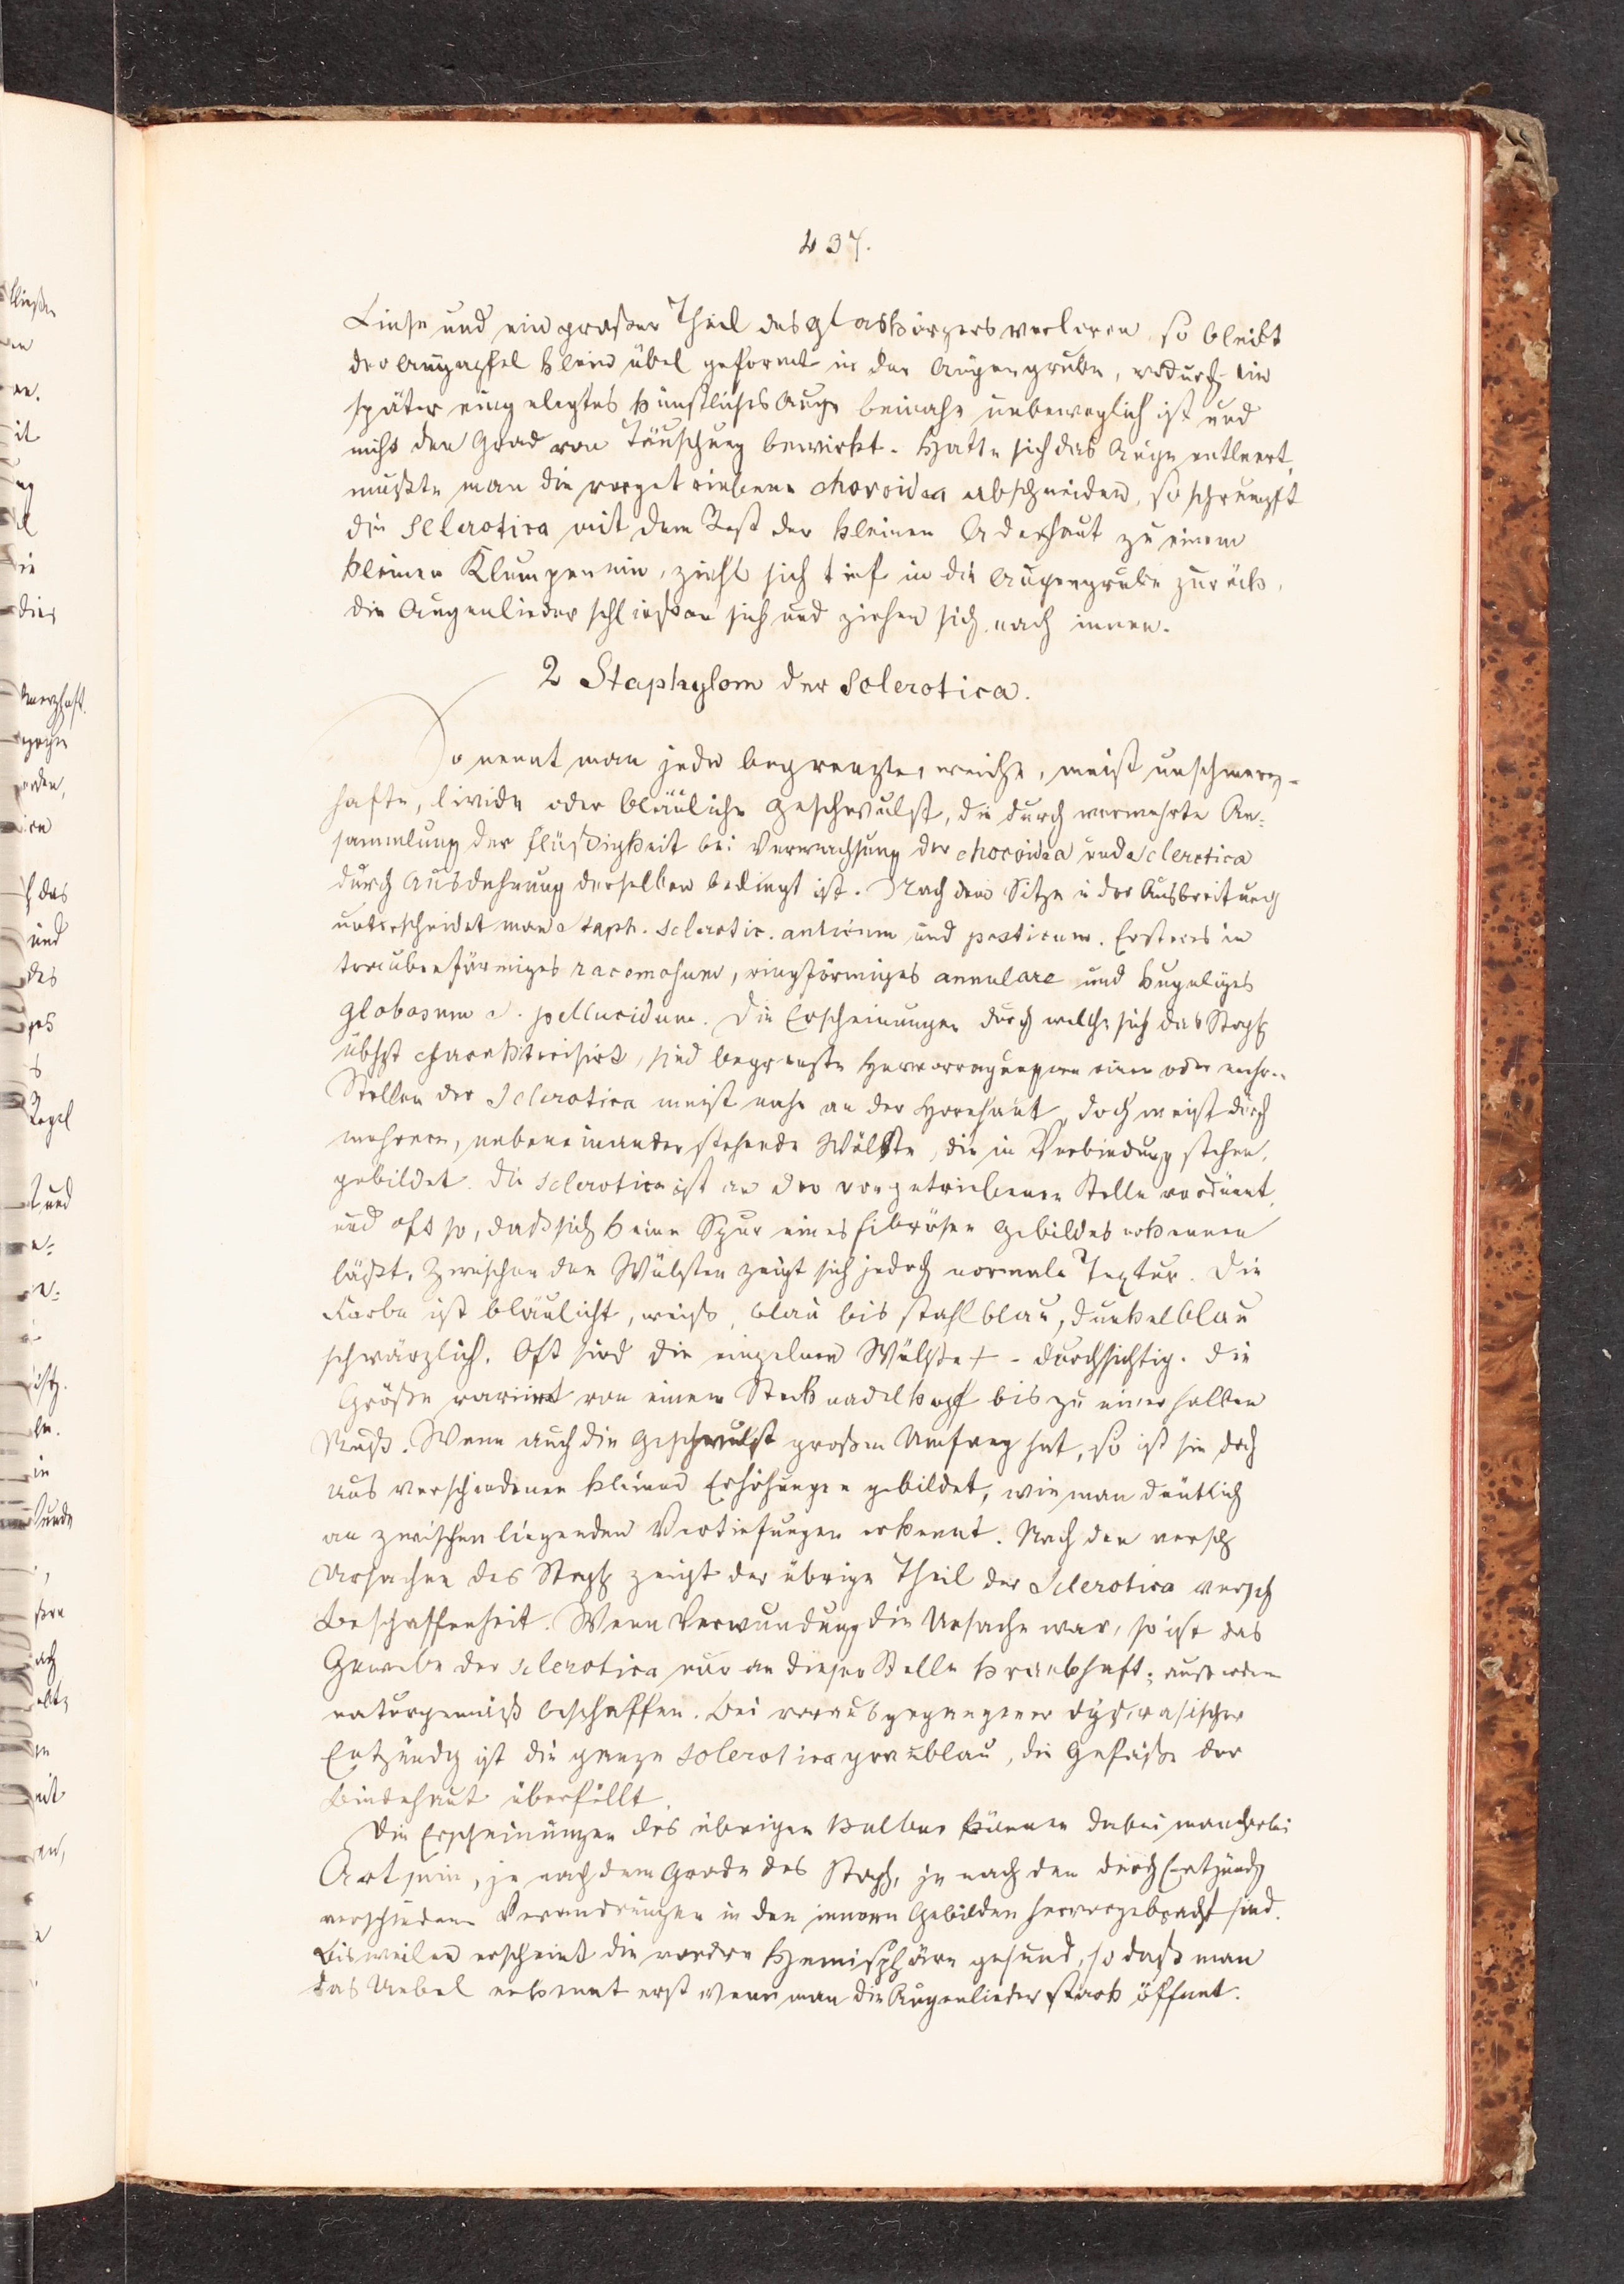 437.
Linse und ein großer Theil des Glaskörpers verloren, so bleibt
der Augapfel klein übel geformt in der Augengrube, wodurch ein
später eingelegtes künstliches Auge beinahe unbeweglich ist und
nicht den Grad von Täuschung bewirkt. Hatte sich das Auge entleert,
mußte man die vorgetriebene choroidea abschneiden, so schrumpft
die Sclerotica mit dem Rest der kleinen Aderhaut zu einem
kleinen Klumpen ein, zieht sich tief in die Augengrube zurück,
die Augenlieder schließen sich und ziehen sich nach innen.
2 Staphylom der Sclerotica.
So nennt man jede begrenzte, weiche, meist unschmerz-
hafte, livide oder bläuliche Geschwulst, die durch vermehrte An-
sammlung der Flüßigkeit bei Verwachsung der choroidea und Sclerotica
durch Ausdehnung derselben bedingt ist. Nach dem Sitze u der Ausbreitung
unterscheidet man Staph. sclerotic. anticum und posticum. Ersteres in
traubenförmiges racemosum, ringförmiges annulare und kugeliges
globosum s. pellucidum. Die Erscheinungen durch welche sich das Staph
übhpt charakterisirt, sind begrenzte Hervorragungen einer oder mehr..
Stellen der Sclerotica meist nahe an der Hornhaut, doch meist durch
mehrere, nebeneinander stehende Wülste, die in Verbindung stehen,
gebildet. Die Sclerotica ist an der vorgetriebenen Stelle verdünnt,
und oft so, daß sich keine Spur eines fibrösen Gebildes erkennen
läßt. Zwischen den Wülsten zeigt sich jedoch normale Textur. Die
Farbe ist bläulicht, weiß, blau bis stahlblau, dunkelblau
schwärzlich. Oft sind die einzelnen Wülste + - durchsichtig. Die
Größe variirt von einem Stecknadelkopf bis zu einer halben
Nuß. Wenn auch die Geschwulst großen Umfang hat, so ist sie doch
aus verschiedenen kleinen Erhöhungen gebildet, wie man deutlich
an zwischen liegenden Vertiefungen erkennt. Nach den versch
Ursachen des Staph zeigt der übrige Theil der Sclerotica versch
Beschaffenheit. Wenn Verwundung die Ursache war, so ist das
Gewebe der Sclerotica nur an dieser Stelle krankhaft, außerdem
naturgemäß beschaffen. Bei vorausgegangener dyscrasischer
Entzündg ist die ganze Sclerotica graublau, die Gefäße der
Bindehaut überfüllt.
Die Erscheinungen des übrigen Bulbus können dabei mancherlei
Art sein, je nach dem Grade des Staph, je nach den durch Entzündg
verschiedene Veränderungen in den innern Gebilden hervorgebracht sind.
Bisweilen erscheint die vordere Hemisphäre gesund, so daß man
das Uebel erkennt erst wenn man die Augenlieder stark öffnet.